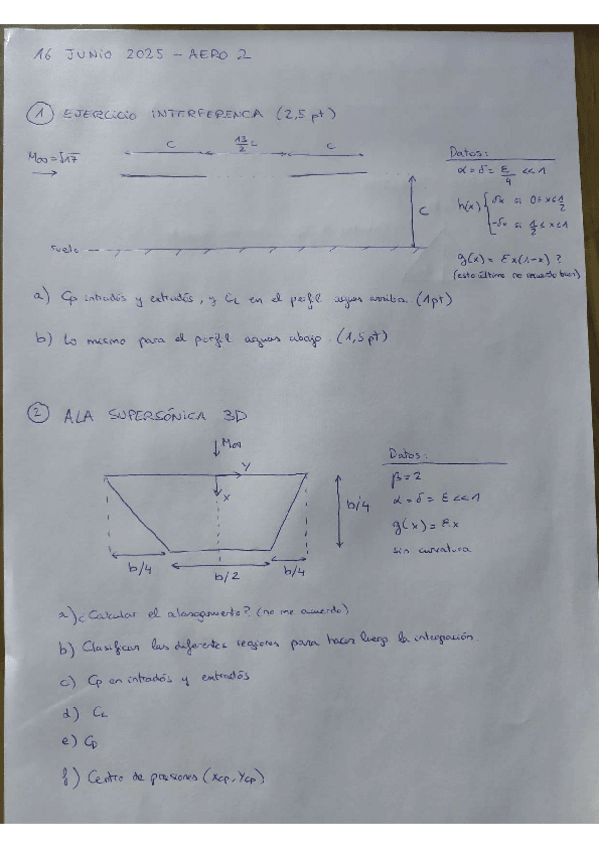 16 JUNIO 2025 - AERO 2
① EJERCICIO INTERFERENCA (2,5 pt)
M∞=√17
c
13/2 c
c
c
suelo
Datos:
α=δ=ε/4 <<1
h(x) { δx si 0≤x≤1/2
-δx si 1/2≤x≤1
g(x) = εx(1-x) ?
(esto último no recuerdo bien)
a) Cp intradós y extradós, y CL en el perfil aguas arriba. (1pt)
b) Lo mismo para el perfil aguas abajo. (1,5 pt)
② ALA SUPERSÓNICA 3D
M∞
y
x
b/4
b/4
b/2
b/4
Datos:
β=2
α=δ=ε<<1
g(x)=εx
sin curvatura
a) ¿Calcular el alargamiento? (no me acuerdo)
b) Clasificar las diferentes regiones para hacer luego la integración.
c) Cp en intradós y extradós
d) CL
e) CD
f) Centro de presiones (xcp, ycp)